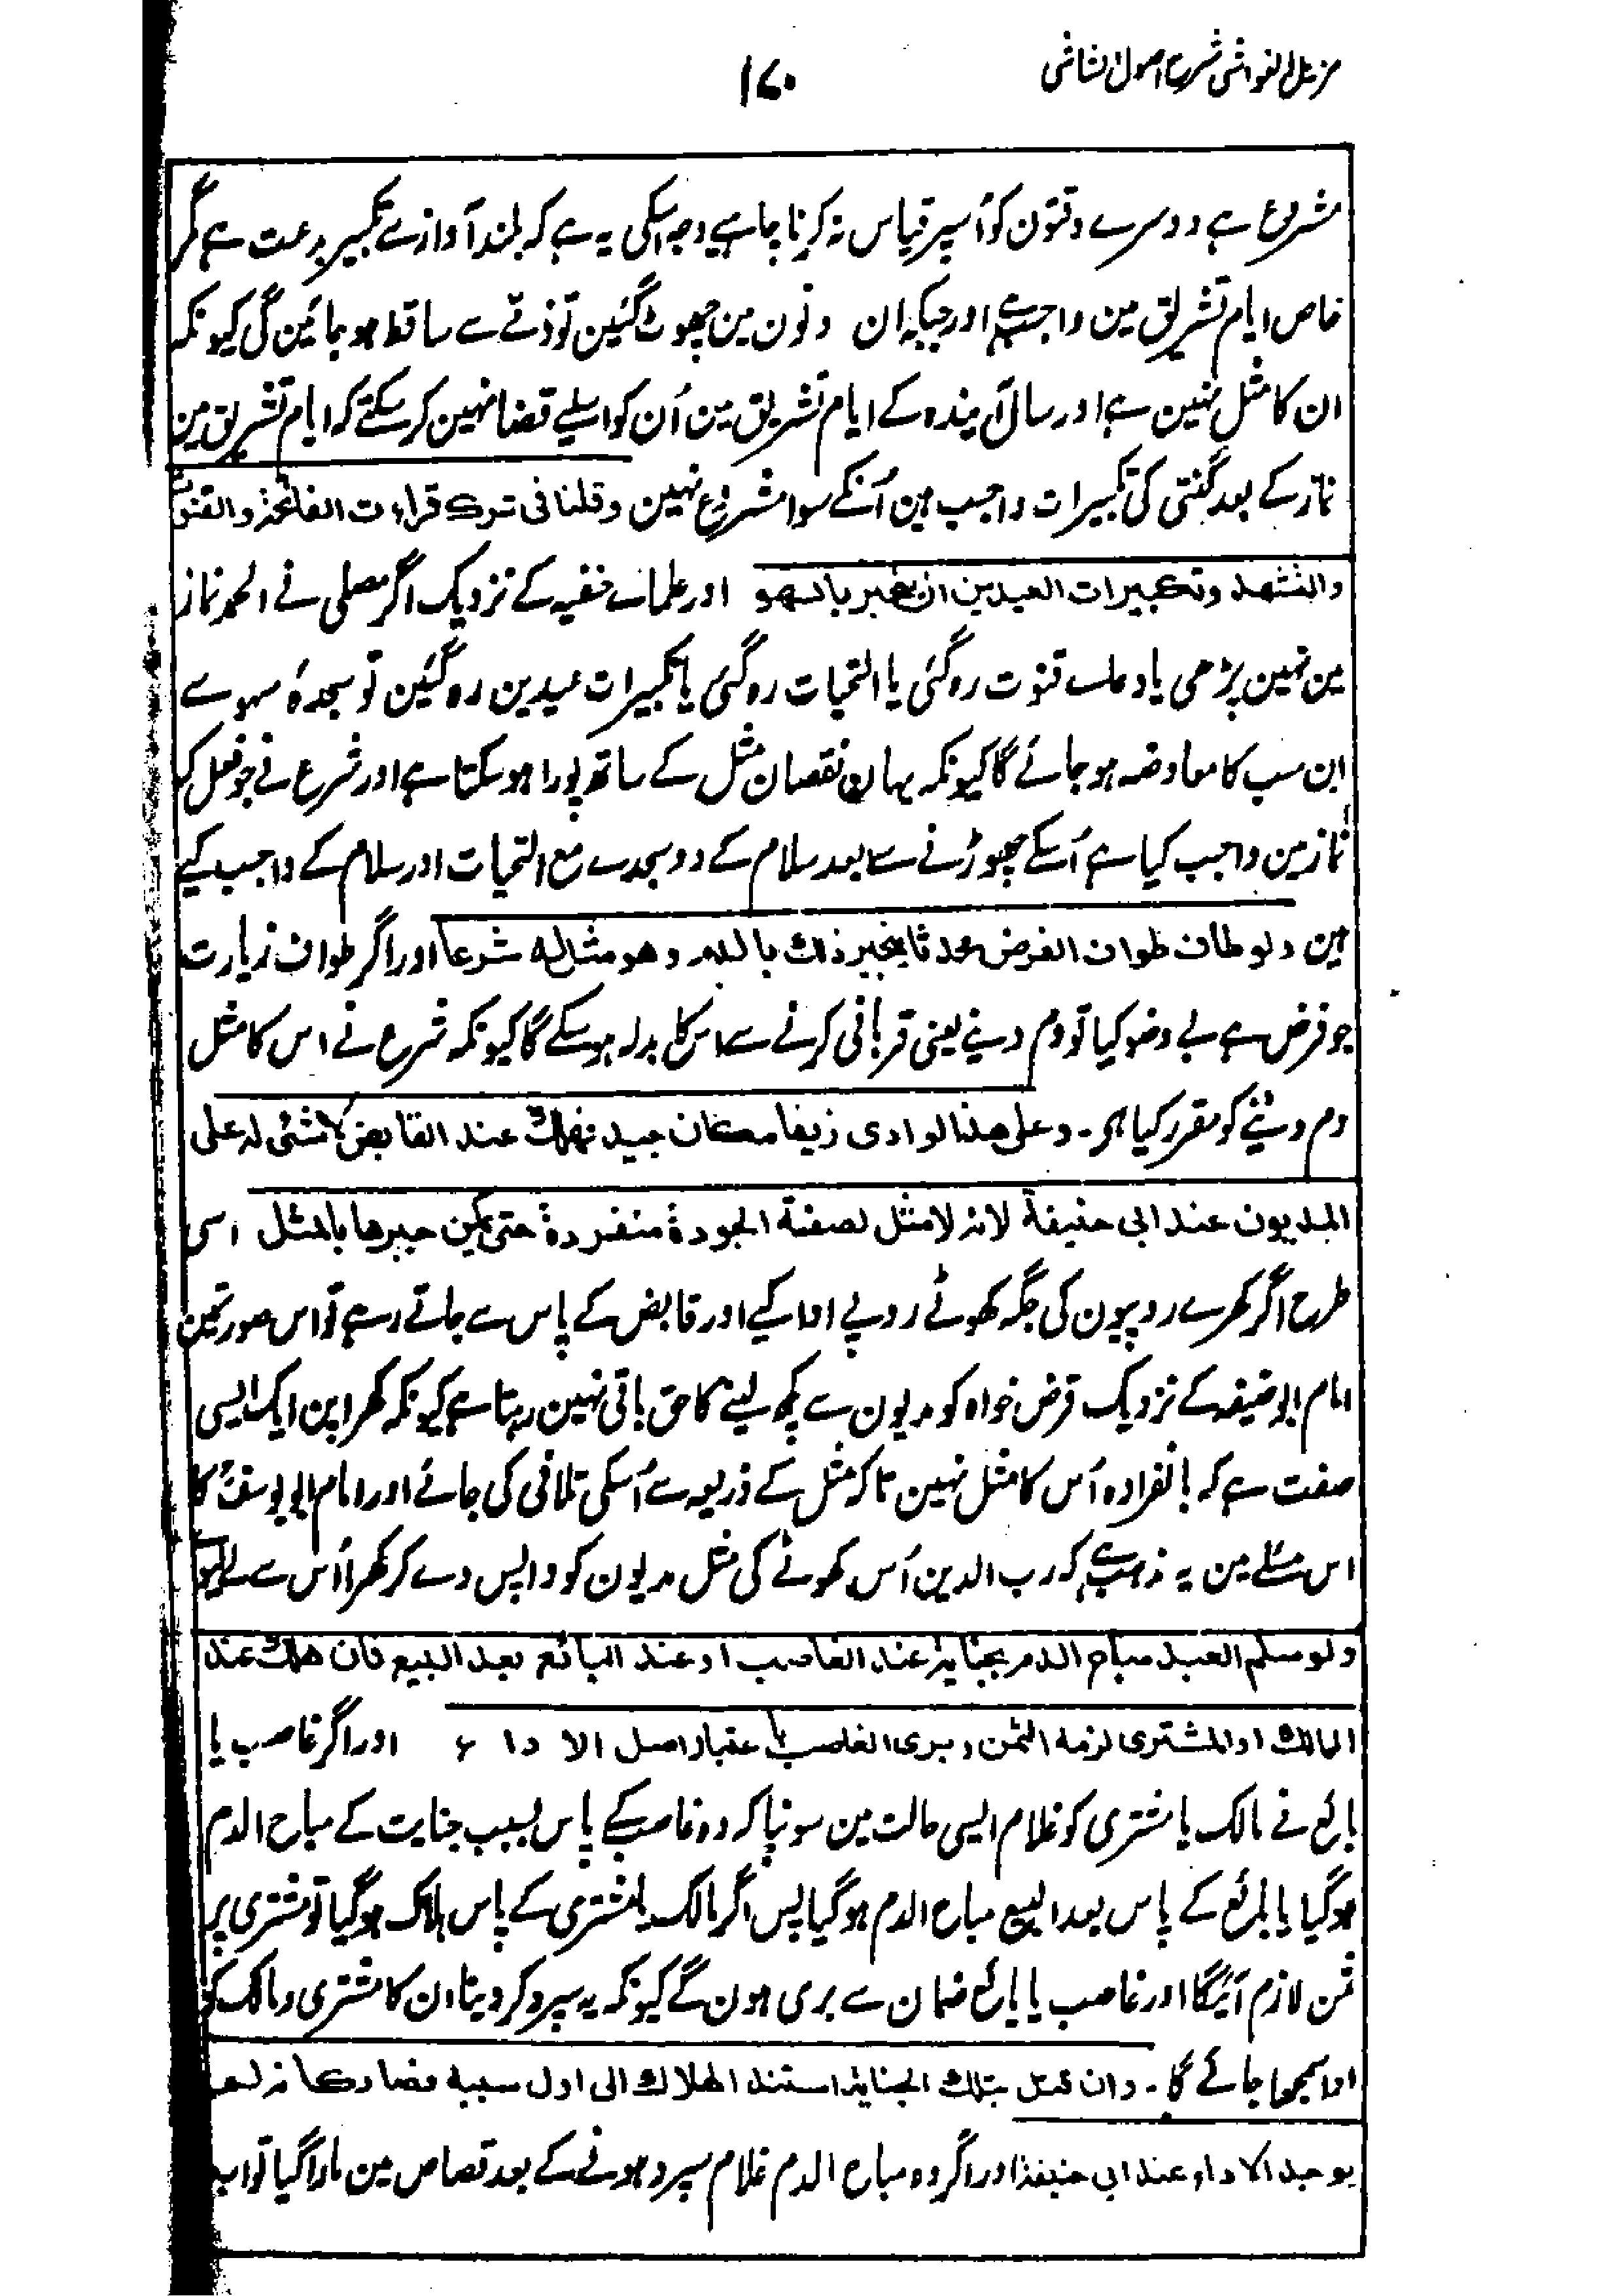 مزیل الغواشی شرح اصول الشاشی
۱۷۰
مشروع ہے دوسرے وقتون کو اُسپر قیاس نہ کرنا چاہیے وجہ اسکی یہ ہے کہ بلند آواز سے تکبیر بدعت ہے مگر
خاص ایام تشریق مین واجب ہے اور جبکہ ان دنون مین چھوٹ گئین تو ذمے سے ساقط ہو جائین گی کیونکہ
ان کا مثل نہین ہے اور سال آیندہ کے ایام تشریق مین اُن کو اسلیے قضا نہین کر سکتے کہ ایام تشریق مین
نماز کے بعد گنتی کی تکبیرات واجب ہین اُنکے سوا مشروع نہین وقلنا فی ترک قراءت الفاتحۃ والقنوت
والتشھد وتکبیرات العیدین انہ یجبر بالسھو اور علماے حنفیہ کے نزدیک اگر مصلی نے الحمد نماز
مین نہین پڑھی یا دعاے قنوت رہ گئی یا التحیات رہ گئی یا تکبیرات عیدین رہ گئین تو سجدۂ سہو سے
ان سب کا معاوضہ ہو جائے گا کیونکہ یہان نقصان مثل کے ساتھ پورا ہو سکتا ہے اور شرع نے جو فعل کہ
نماز مین واجب کیا ہے اُسکے چھوڑنے سے بعد سلام کے دو سجدے مع التحیات اور سلام کے واجب کیے
ہین ولو طاف طواف الفرض محدثا یجبر ذلک بالدم وھو مثل لہ شرعا اور اگر طواف زیارت
جو فرض ہے بے وضو کیا تو دم دینے یعنی قربانی کرنے سے اس کا بدلہ ہو سکے گا کیونکہ شرع نے اس کا مثل
دم دینے کو مقرر کیا ہے۔ وعلی ھذا لو ادی زیفا مکان جید فھلک عند القابض لا شئ لہ علی
المدیون عند ابی حنیفۃ لانہ لا مثل لصفۃ الجودۃ منفردۃ حتی یمکن جبرھا بالمثل اسی
طرح اگر کھرے روپیون کی جگہ کھوٹے روپے ادا کیے اور قابض کے پاس سے جاتے رہے تو اس صورتمین
امام ابو حنیفہ کے نزدیک قرض خواہ کو مدیون سے کچھ لینے کا حق باقی نہین رہتا ہے کیونکہ کھراپن ایک ایسی
صفت ہے کہ بانفرادہ اُس کا مثل نہین تاکہ مثل کے ذریعہ سے اُسکی تلافی کی جائے اور امام ابو یوسفؒ کا
اس مسئلے مین یہ مذہب ہے کہ رب الدین اُس کھوٹے کی مثل مدیون کو واپس دے کر کھرا اُس سے
ولو سلم العبد مباح الدم بجنایۃ عند الغاصب او عند البائع بعد البیع فان ھلک عند
المالک او المشتری لزمہ الثمن وبری الغاصب باعتبار اصل الاداء اور اگر غاصب یا
بائع نے مالک یا مشتری کو غلام ایسی حالت مین سونپا کہ وہ غاصب کے پاس بسبب جنایت کے مباح الدم
ہو گیا یا بائع کے پاس بعد البیع مباح الدم ہو گیا پس اگر مالک یا مشتری کے پاس ہلاک ہو گیا تو مشتری پر
ثمن لازم آئیگا اور غاصب یا بائع ضمان سے بری ہون گے کیونکہ یہ سپرد کر دینا ان کا مشتری و مالک کو
ادا سمجھا جائے گا۔ وان قتل بتلک الجنایۃ استند الھلاک الی اول سببہ فصار کانہ لم
یوجد الاداء عند ابی حنیفۃ اور اگر وہ مباح الدم غلام سپرد ہونے کے بعد قصاص مین مارا گیا تو اب